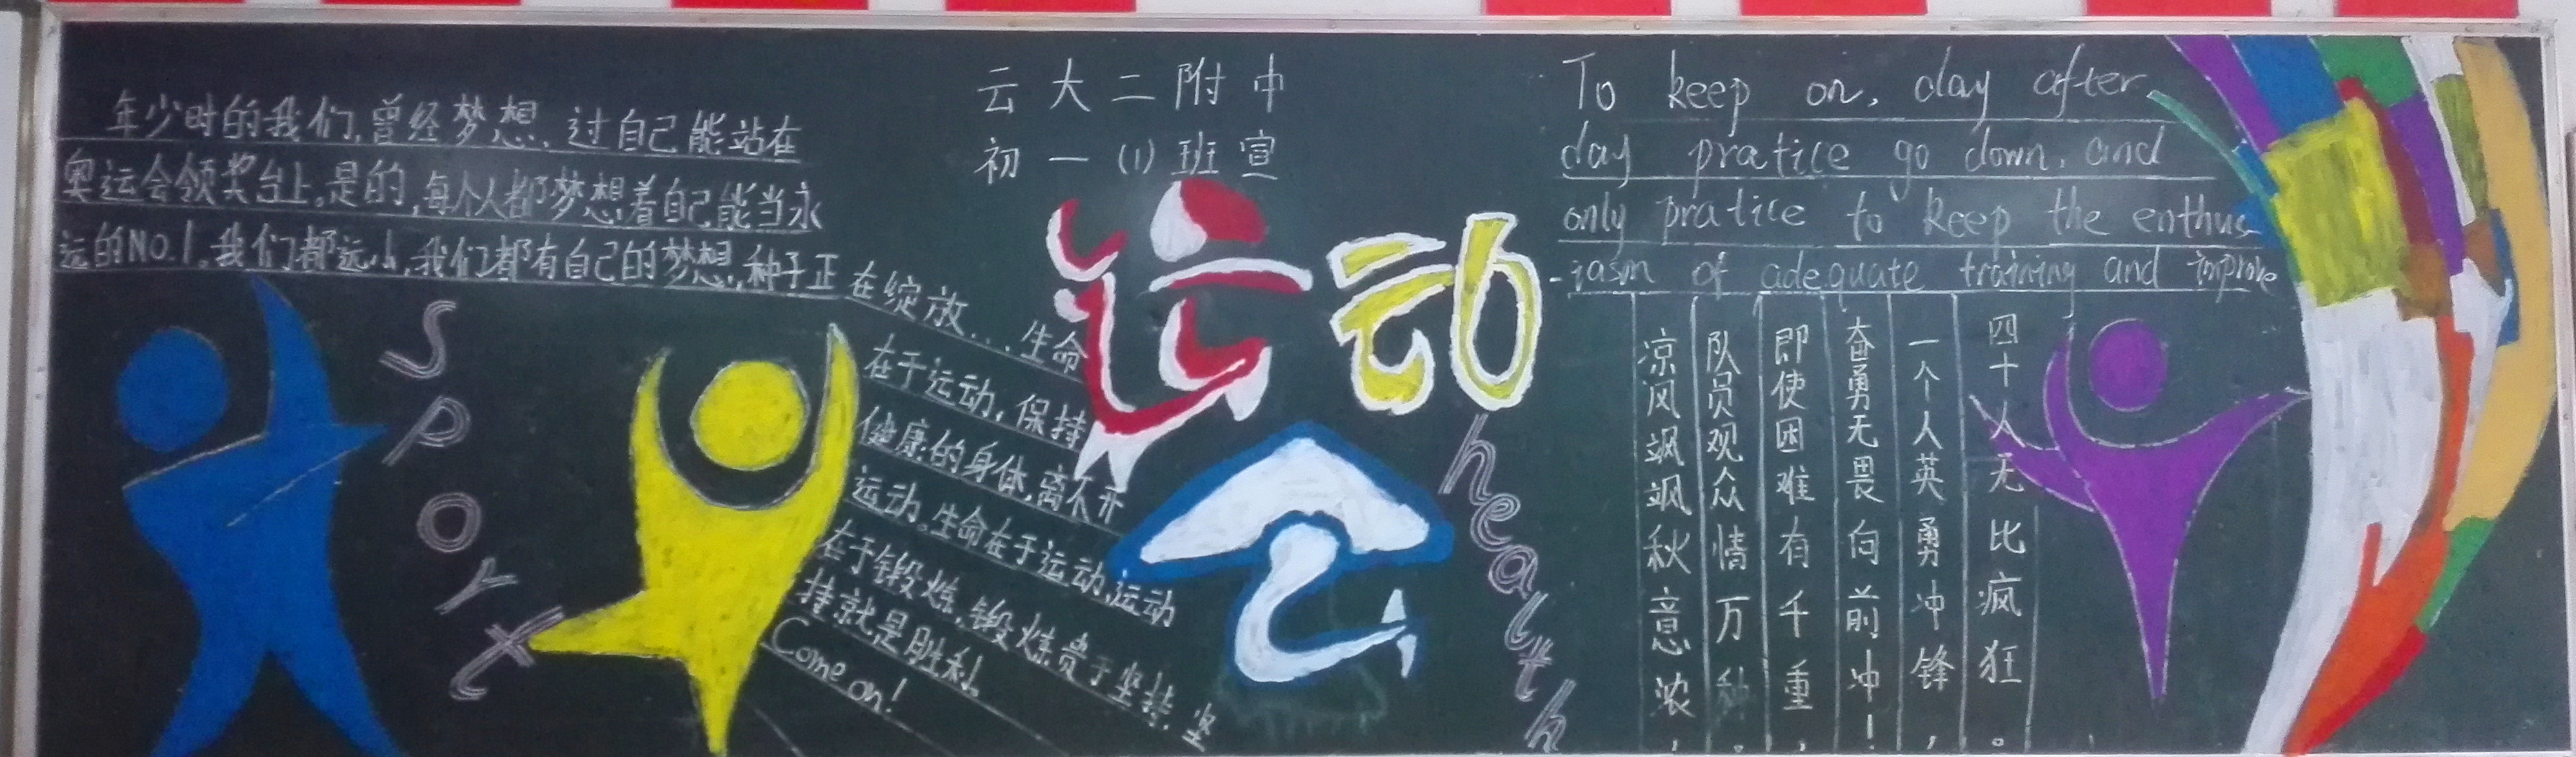 年少时的我们,曾经梦想,过自己能站在
奥运会领奖台上,是的,每个人都梦想着自己能当永
远的NO.1。我们都远小,我们都有自己的梦想,种子正
在绽放...生命
在于运动,保持
健康的身体,离不开
运动。生命在于运动,运动
在于锻炼,锻炼贵于坚持,坚
持就是胜利
Come on!
sport
云大二附中
初一(1)班宣
运动
会
health
To keep on, day after
day pratice go down, and
only pratice to keep the enthus
-iasm of adequate training and improve
凉风飒飒秋意浓,
队员观众情万种。
即使困难有千重,
奋勇无畏向前冲!
一个人英勇冲锋,
四十人无比疯狂。